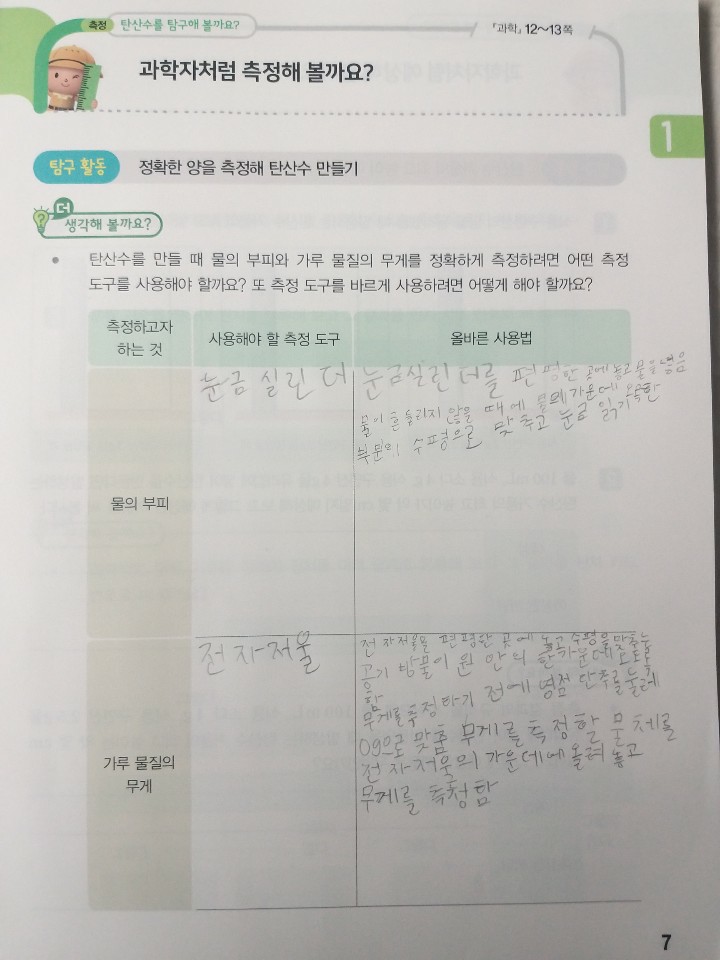 측정 탄산수를 탐구해 볼까요?
『과학』 12~13쪽
과학자처럼 측정해 볼까요?
1
탐구 활동 정확한 양을 측정해 탄산수 만들기
더
생각해 볼까요?
• 탄산수를 만들 때 물의 부피와 가루 물질의 무게를 정확하게 측정하려면 어떤 측정
도구를 사용해야 할까요? 또 측정 도구를 바르게 사용하려면 어떻게 해야 할까요?
측정하고자
하는 것
사용해야 할 측정 도구
올바른 사용법
물의 부피
눈금 실린더
눈금실린더를 편평한 곳에 놓고 물을 넣음
물이 흔들리지 않을 때에 물의 가운데 오목한
부분의 수평으로 맞추고 눈금 읽기
가루 물질의
무게
전자저울
전자저울을 편평한 곳에 놓고 수평을 맞춘
공기 방울이 원 안의 한가운데 오도록
함
무게를 측정하기 전에 영점 단추를 눌러
0g으로 맞춤 무게를 측정할 물체를
전자저울의 가운데에 올려 놓고
무게를 측정함
7